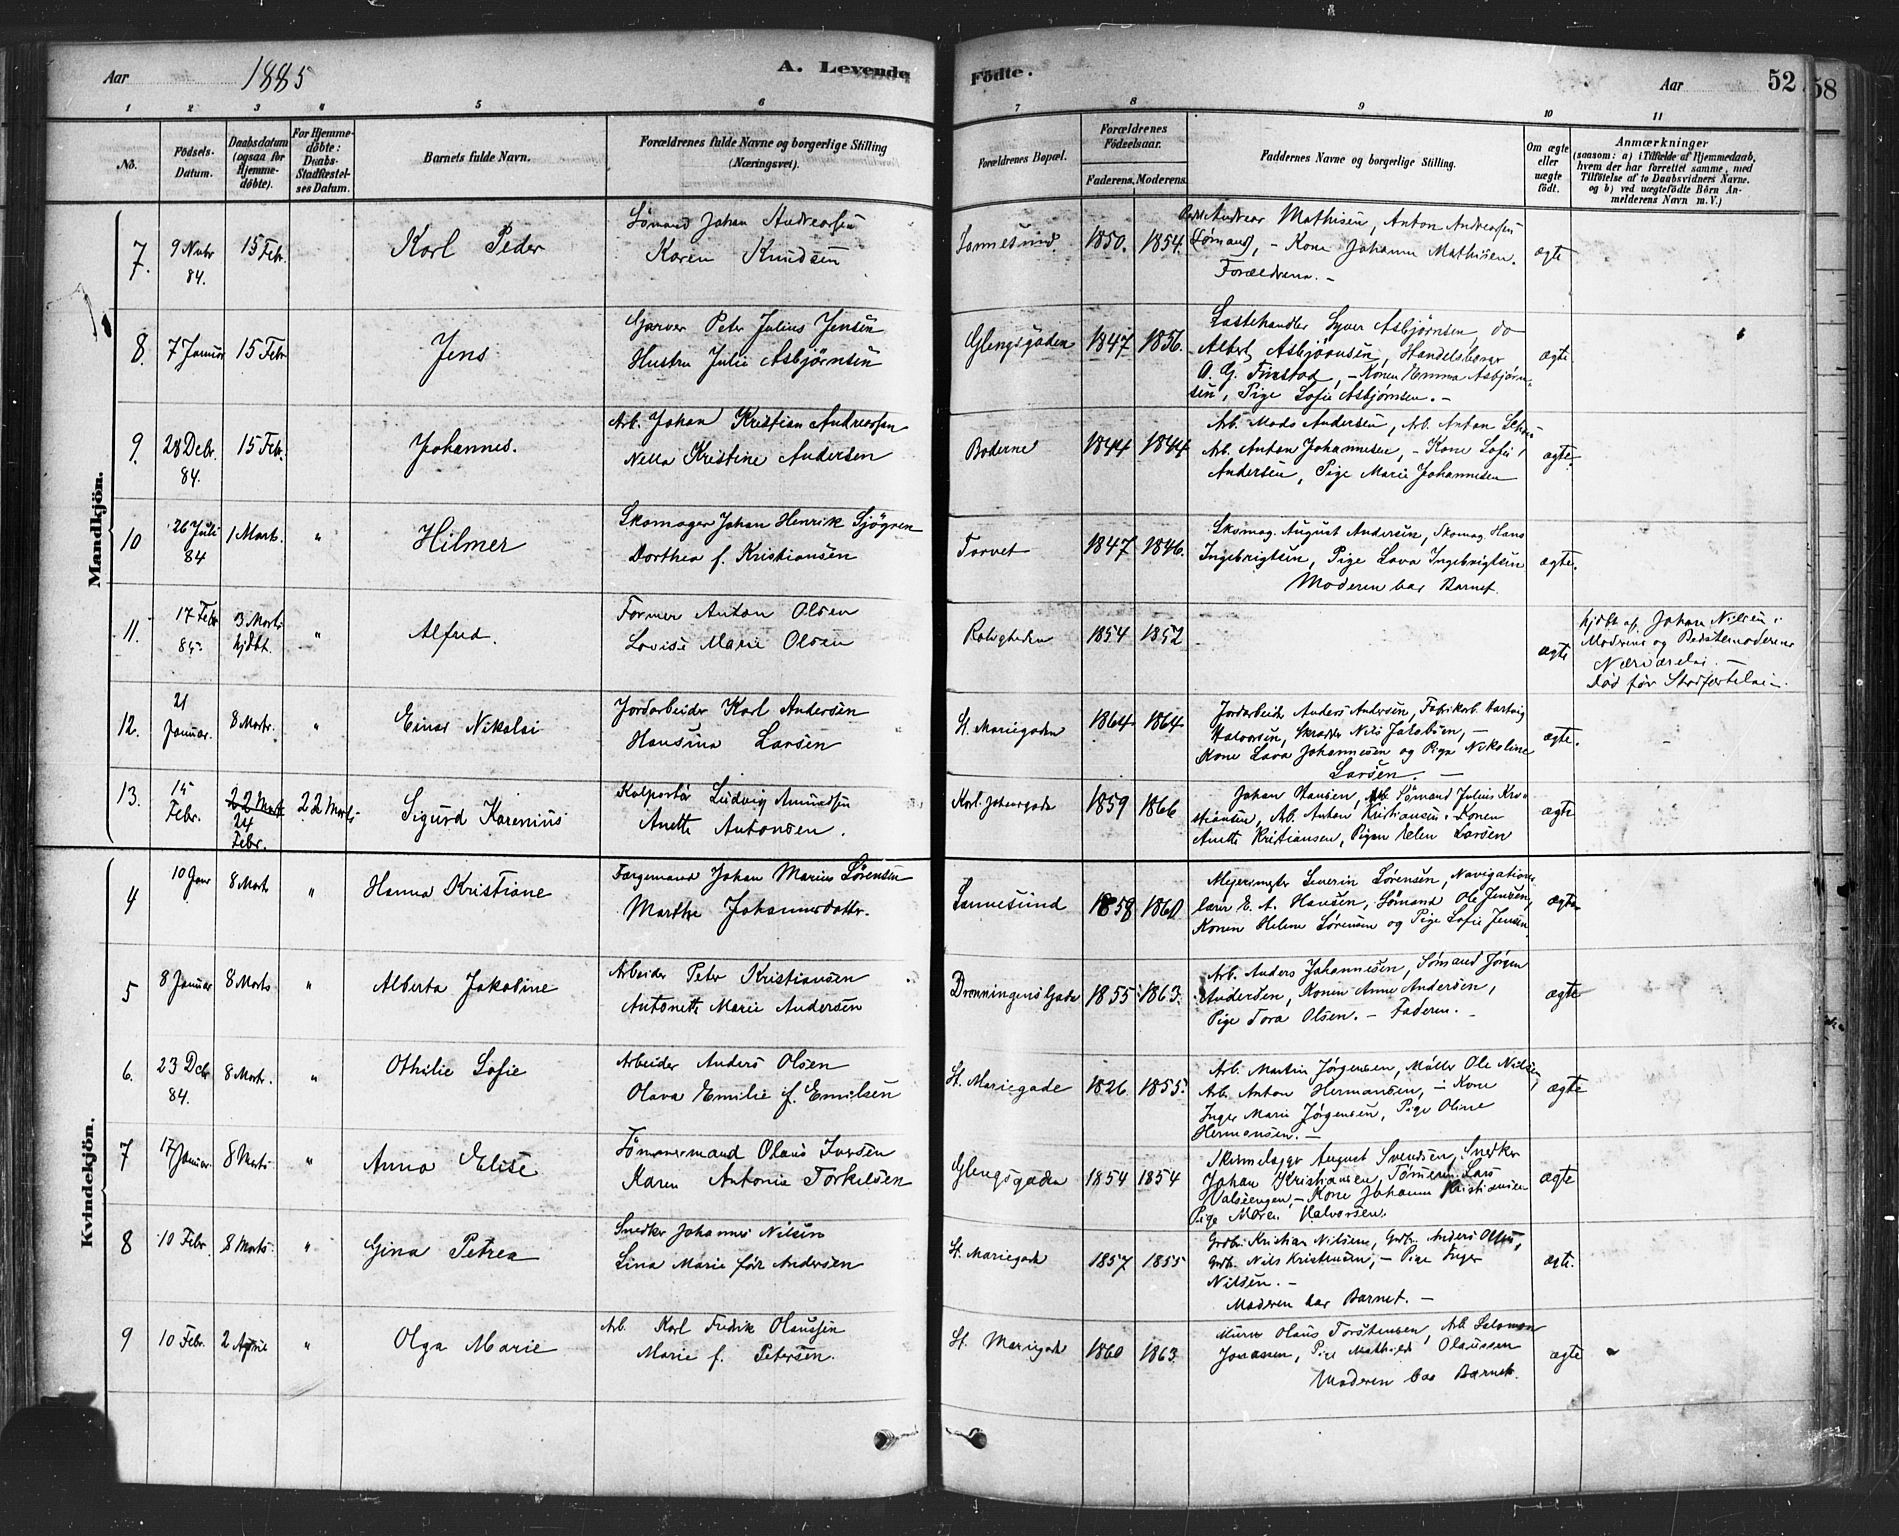 Aar 1885 A. Levende
Fødte. Aar 52 58
1 2 3 " 5 6
7 8 9 10 11
No.
Fødsels-
Datum.
Daabsdatum
(ogsaa for
Hjemme-
døbte).
For Hjemme-
døbte:
Daabs-
Stadfæstel-
ses Datum.
Barnets fulde Navn.
Forældrenes fulde Navne og borgerlige Stilling
(Næringsvei).
Forældrenes Bopæl.
Forældrenes
Fødselsaar.
Faderens. Moderens.
Faddernes Navne og borgerlige Stilling.
Om ægte
eller
uægte
født.
Anmærkninger
(saasom: a) i Tilfælde af Hjemmedaab,
hvem der har forrettet samme, med
Tilføielse af to Daabsvidners Navne.
og b) ved uægtefødte Børn An-
melderens Navn m. V.)
Mandkjön.
7.
9 Nvbr
84.
15 Febr.
Karl Peder
Sømand Johan Andreasen
Karen Knudsen
Sannesund
1850. 1854.
Andreas Mathisen, Anton Andreasen
Sømand, - Kone Johanne Mathisen.
Forældrene. -
ægte
8.
7 Januar
15 Febr
Jens
Garver Peter Julius Jensen
Hustru Julie Asbjørnsen
Glengsgaden
1847 1856.
Syver Asbjørnsen, do
Albert Asbjørnsen, Handelsborger
O. G. Finstad, - Konen Emma Asbjørn-
sen, Pige Sofie Asbjørnsen. -
ægte
9.
28 Debr.
84.
15 Febr.
Johannes.
Arb. Johan Kristian Andreasen
Nella Kristine Andersen
Boderne
1844 1844
Arb. Mads Andersen, Arb. Anton
Arb. Anton Johannesen, - Kone Sofie
Andersen, Pige Marie Johannesen
ægte.
10
26 Juli
84
1 Marts.
"
Hilmer
Skomager Johan Henrik Sjögren
Dorthea f. Kristiansen
Torvet
1847 1846.
Skomag. August Andersen, Skomag. Hans
Ingebrigtsen, Pige Lava Ingebrigtsen
Moderen bar Barnet.
ægte.
11.
17 Febr
85
3 Marts
hjdbt.
"
Alfred.
Former Anton Olsen
Lovise Marie Olsen
Roligheden
1854 1852
-
ægte
hjdbt af Johan Nilsen i
Moderens og Bedstemoderens
Nærværelse. -
Død før Stadfæstelsen.
12.
21
Januar.
8 Marts.
"
Einar Nikolai
Jordarbeider Karl Andersen
Hansine Larsen
St. Mariegaden
1864 1864
Jordarbeider Anders Andersen, Fabrikarb. Hartvig
Halvorsen, Skrædder Nils Jakobsen, -
Kone Lava Johannesen og Pige Nikoline
Larsen. -
ægte.
-
13.
15
Febr.
22 Marts
24
Febr.
22 Marts
Sigurd Karenius
Kolportør Ludvig Amundsen
Anette Antonsen.
Karl Johansgade
1859 1866
Johan Hansen, Arb. Sømand Julius Kri-
stiansen, Arb. Anton Kristiansen, Konen
Anette Kristiansen, Pigen Elen Larsen
ægte
Kvindekjön.
4
10 Janr
8 Marts
"
Hanna Kristiane
Færgemand Johan Marius Sørensen
Marthe Johannesdatter.
Sannesund
1858 1860
Mejerimester Severin Sørensen, Navigations
lærer E. A. Hansen, Sømand Ole Jensen,
Konen Helene Sørensen og Pige Sofie Jensen.
ægte
5
8 Januar
8 Marts
"
Alberta Jakobine
Arbeider Peter Kristiansen
Antonette Marie Andersen
Dronningens Gade
1855 1863.
Arb. Anders Johannesen, Sømand Jørgen
Andersen, Konen Anne Andersen,
Pige Tora Olsen. - Faderen. -
ægte
6.
23 Debr
84.
8 Marts.
"
Othilie Sofie
Arbeider Anders Olsen
Olava Emilie f. Emilsen
St. Mariegade
1826 1855.
Arb. Martin Jørgensen, Møller Ole Nilsen,
Arb. Anton Hermansen, - Kone
Inger Marie Jørgensen, Pige Oline
Hermansen. -
ægte
7
17 Januar.
8 Marts
"
Anna Elise
Tømmermand Olaus Iversen
Karen Antonie Torkelsen
Glengsgaden
1854 1854
August Svendsen, Snedker
Johan Kristiansen, Tømmerm. Lars
- Kone Johanne Kristiansen
Pige Maren Halvorsen.
ægte
8
10 Febr
8 Marts
"
Gina Petrea
Snedker Johannes Nilsen
Lina Marie før Andersen
St. Mariegade
1857 1855
Grdbr. Kristian Nilsen, Grdbr. Anders Olsen,
Grdb. Nils Kristensen, - Pige Inger
Nilsen. -
Moderen bar Barnet. -
ægte.
9
10 Febr.
2 Aprile
"
Olga Marie
Arb. Karl Fredrik Olaussen
Marie f. Petersen.
St. Mariegade
1860 1863
Murer Olaus Torstensen, Arb Salomon
Jonassen, Pige Mathilde Olaussen
Moderen bar Barnet.
ægte